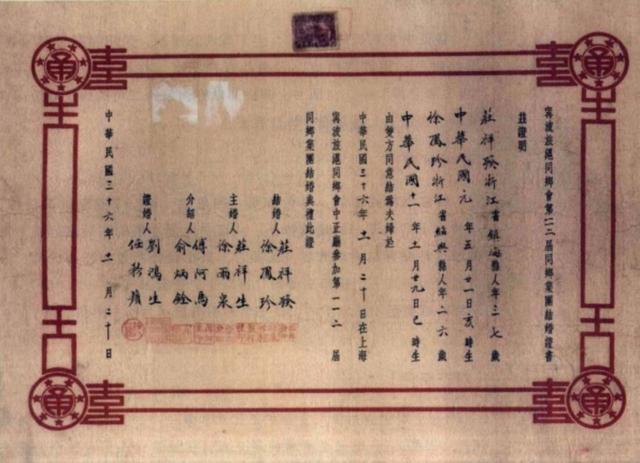 寗波旅滬同鄉會第一一二屆同鄉集團結婚證書
茲證明
莊祥揆浙江省鎮海縣人年三七歲
中華民國元年五月廿一日亥時生
徐鳳珍浙江省紹興縣人年二六歲
中華民國十一年十一月廿九日巳時生
由雙方同意結為夫婦於
中華民國三十六年十一月二十日在上海
寗波旅滬同鄉會中正廳參加第一一二屆
同鄉集團結婚典禮此證
結婚人 莊祥揆
徐鳳珍
主婚人 莊祥生
徐雨泉
介紹人 傅河馬
俞炳銓
證婚人 劉鴻生
任矜蘋
中華民國三十六年十一月二十日
甬
甬
甬
甬